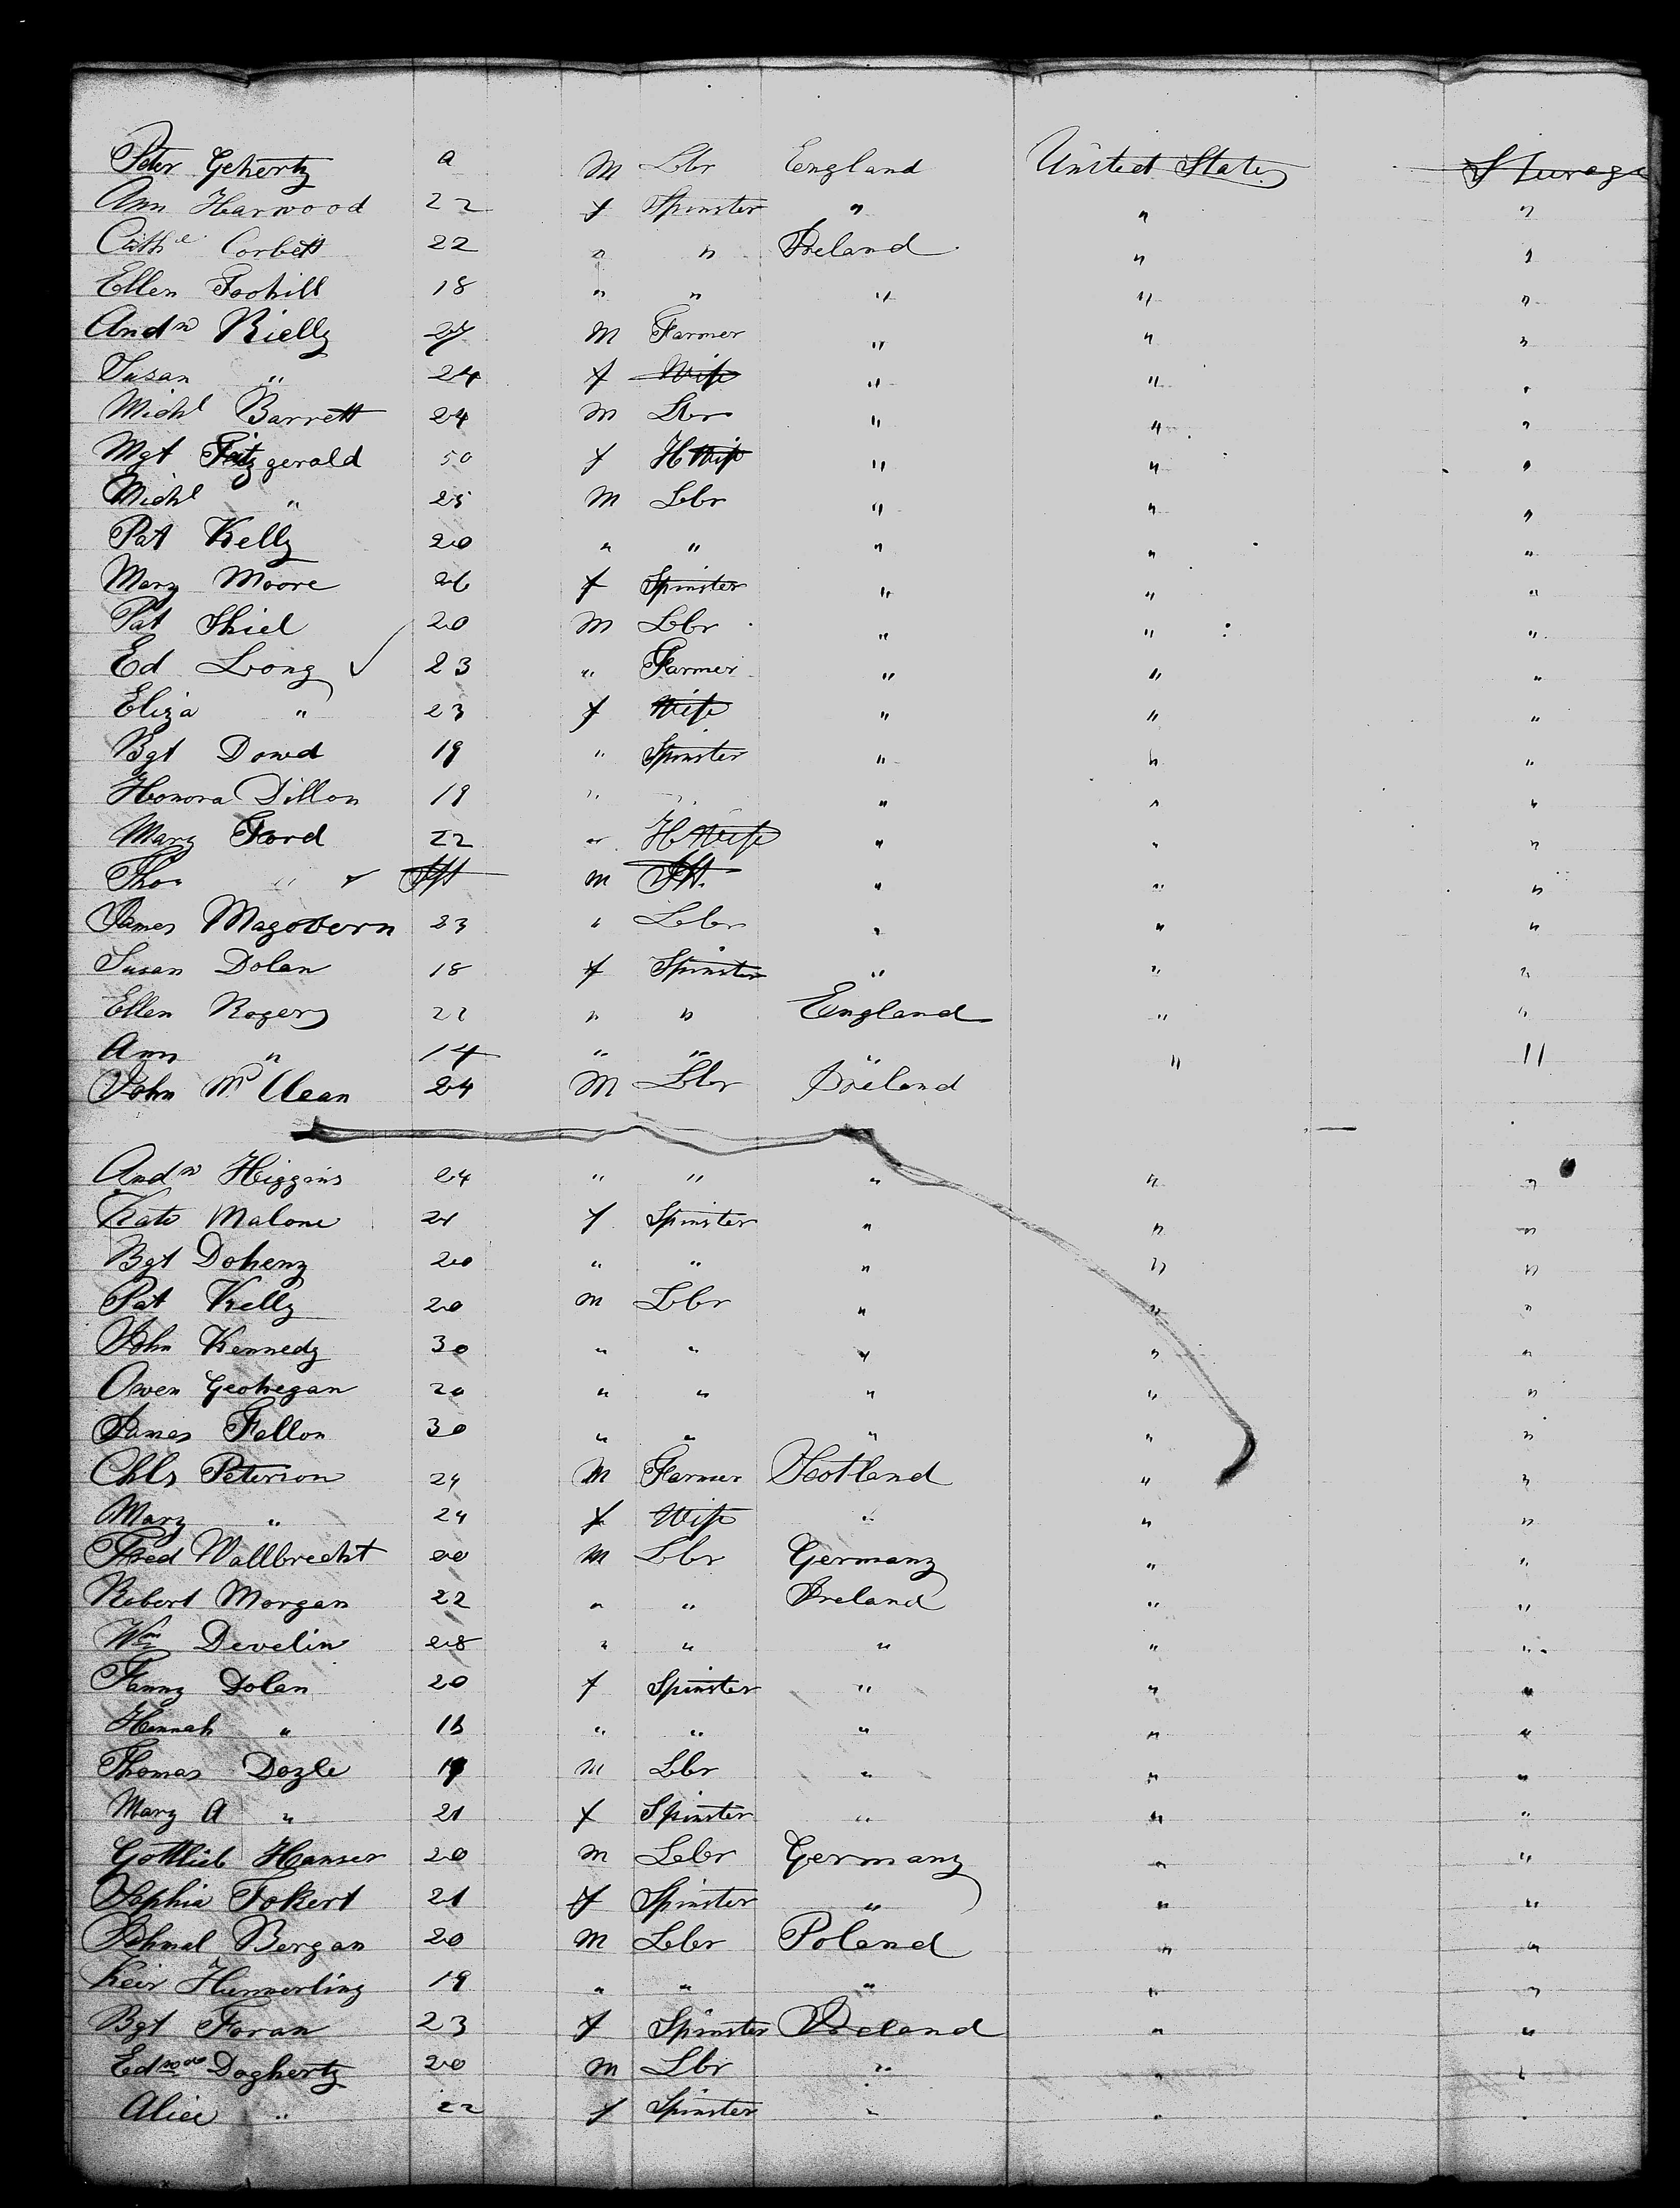 Peter Gehertz a M Lbr England United States Sterage
Ann Harwood 22 f Spinster " " "
Cathe Corbett 22 " " Ireland " "
Ellen Foohill 18 " " " " "
Andw Rielly 27 M Farmer " " "
Susan " 24 f Wife " " "
Michl Barrett 24 M Lbr " " "
Mgt Fitzgerald 50 f HWife " " "
Michl " 25 M Lbr " " "
Pat Kelly 20 " " " " "
Mary Moore 26 f Spinster " " "
Pat Shiel 20 M Lbr " " "
Ed Long ✓ 23 " Farmer " " "
Eliza " 23 f Wife " " "
Bgt Dowd 19 " Spinster " " "
Honora Dillon 19 " " " " "
Mary Ford 22 " HWife " " "
Thos " Inft M Inft " " "
James Magovern 23 " Lbr " " "
Susan Dolan 18 f Spinster " " "
Ellen Rogers 22 " " England " "
Ann " 14 " " " " "
John Mc Clean 24 M Lbr Ireland
Andw Higgins 24 " " " " "
Kate Malone 21 f Spinster " " "
Bgt Doheny 20 " " " " "
Pat Kelly 20 M Lbr " " "
John Kennedy 30 " " " " "
Owen Geohegan 20 " " " " "
James Fallon 30 " " " " "
Chls Peterson 24 M Farmer Scotland " "
Mary " 24 f Wife " " "
Fred Wallbrecht 20 M Lbr Germany " "
Robert Morgan 22 " " Ireland " "
Wm Develin 28 " " " " "
Fanny Dolan 20 f Spinster " " "
Hannah " 18 " " " " "
Thomas Doyle 19 M Lbr " " "
Mary A " 21 f Spinster " " "
Gottlieb Hanser 20 M Lbr Germany " "
Sophia Fokert 21 f Spinster " " "
Bergan 20 M Lbr Poland " "
Keir Hummerling 19 " " " " "
Bgt Foran 23 f Spinster Ireland " "
Edmond Dogherty 20 M Lbr " " "
Alice " 22 f Spinster " " "